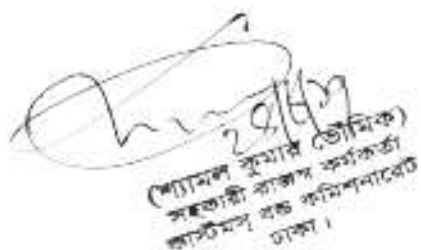 (শ্যামল কুমার ভৌমিক)
সহকারী রাজস্ব কর্মকর্তা
কাস্টমস্ বন্ড কমিশনারেট
ঢাকা।